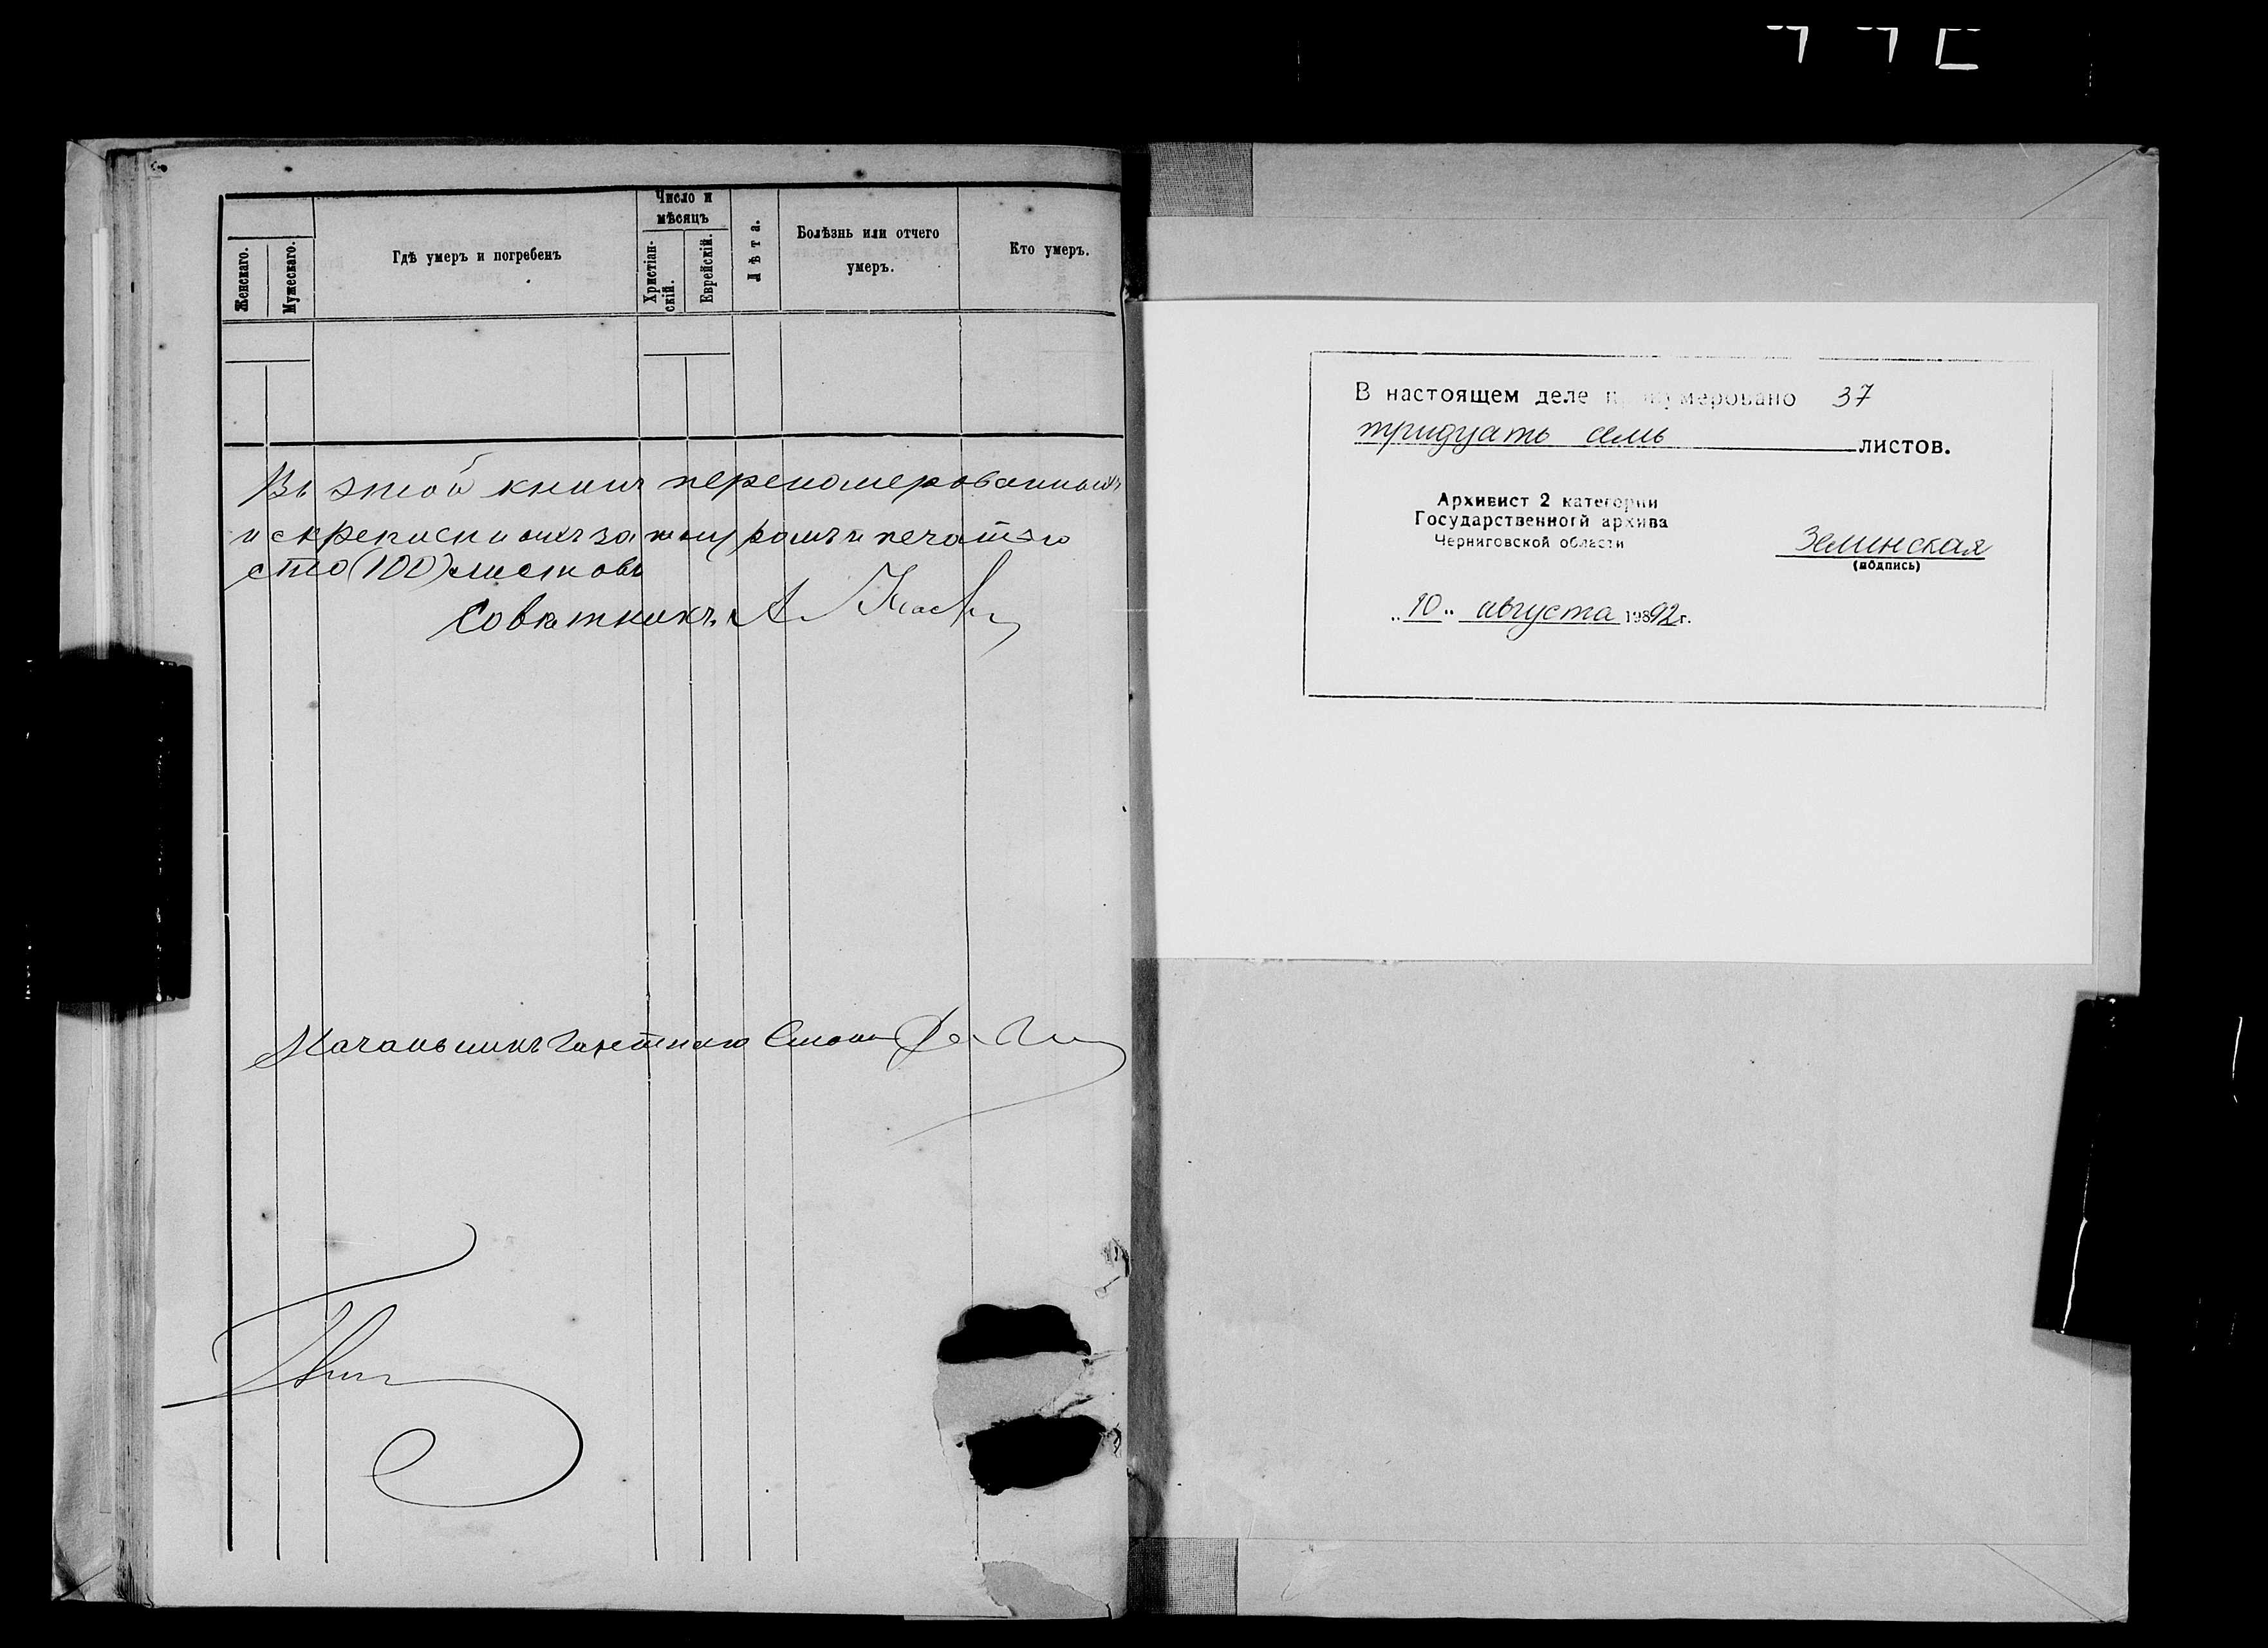 Женскаго.
Мужескаго.
Гдѣ умеръ и погребенъ
Число и мѣсяцъ
Христіан-скій.
Еврейскій.
Лѣта.
Болѣзнь или отчего умеръ.
Кто умеръ.
Въ этой книгѣ перенумерованныхъ
и скрепленныхъ за шнуромъ и печатью
сто (100) листовъ
Совѣтникъ А.
Начальникъ Газетнаго Стола
В настоящем деле пронумеровано 37
тридцать семь листов.
Архивист 2 категории
Государственной архива
Черниговской области
Земинская
(подпись)
„10" августа 19892 г.